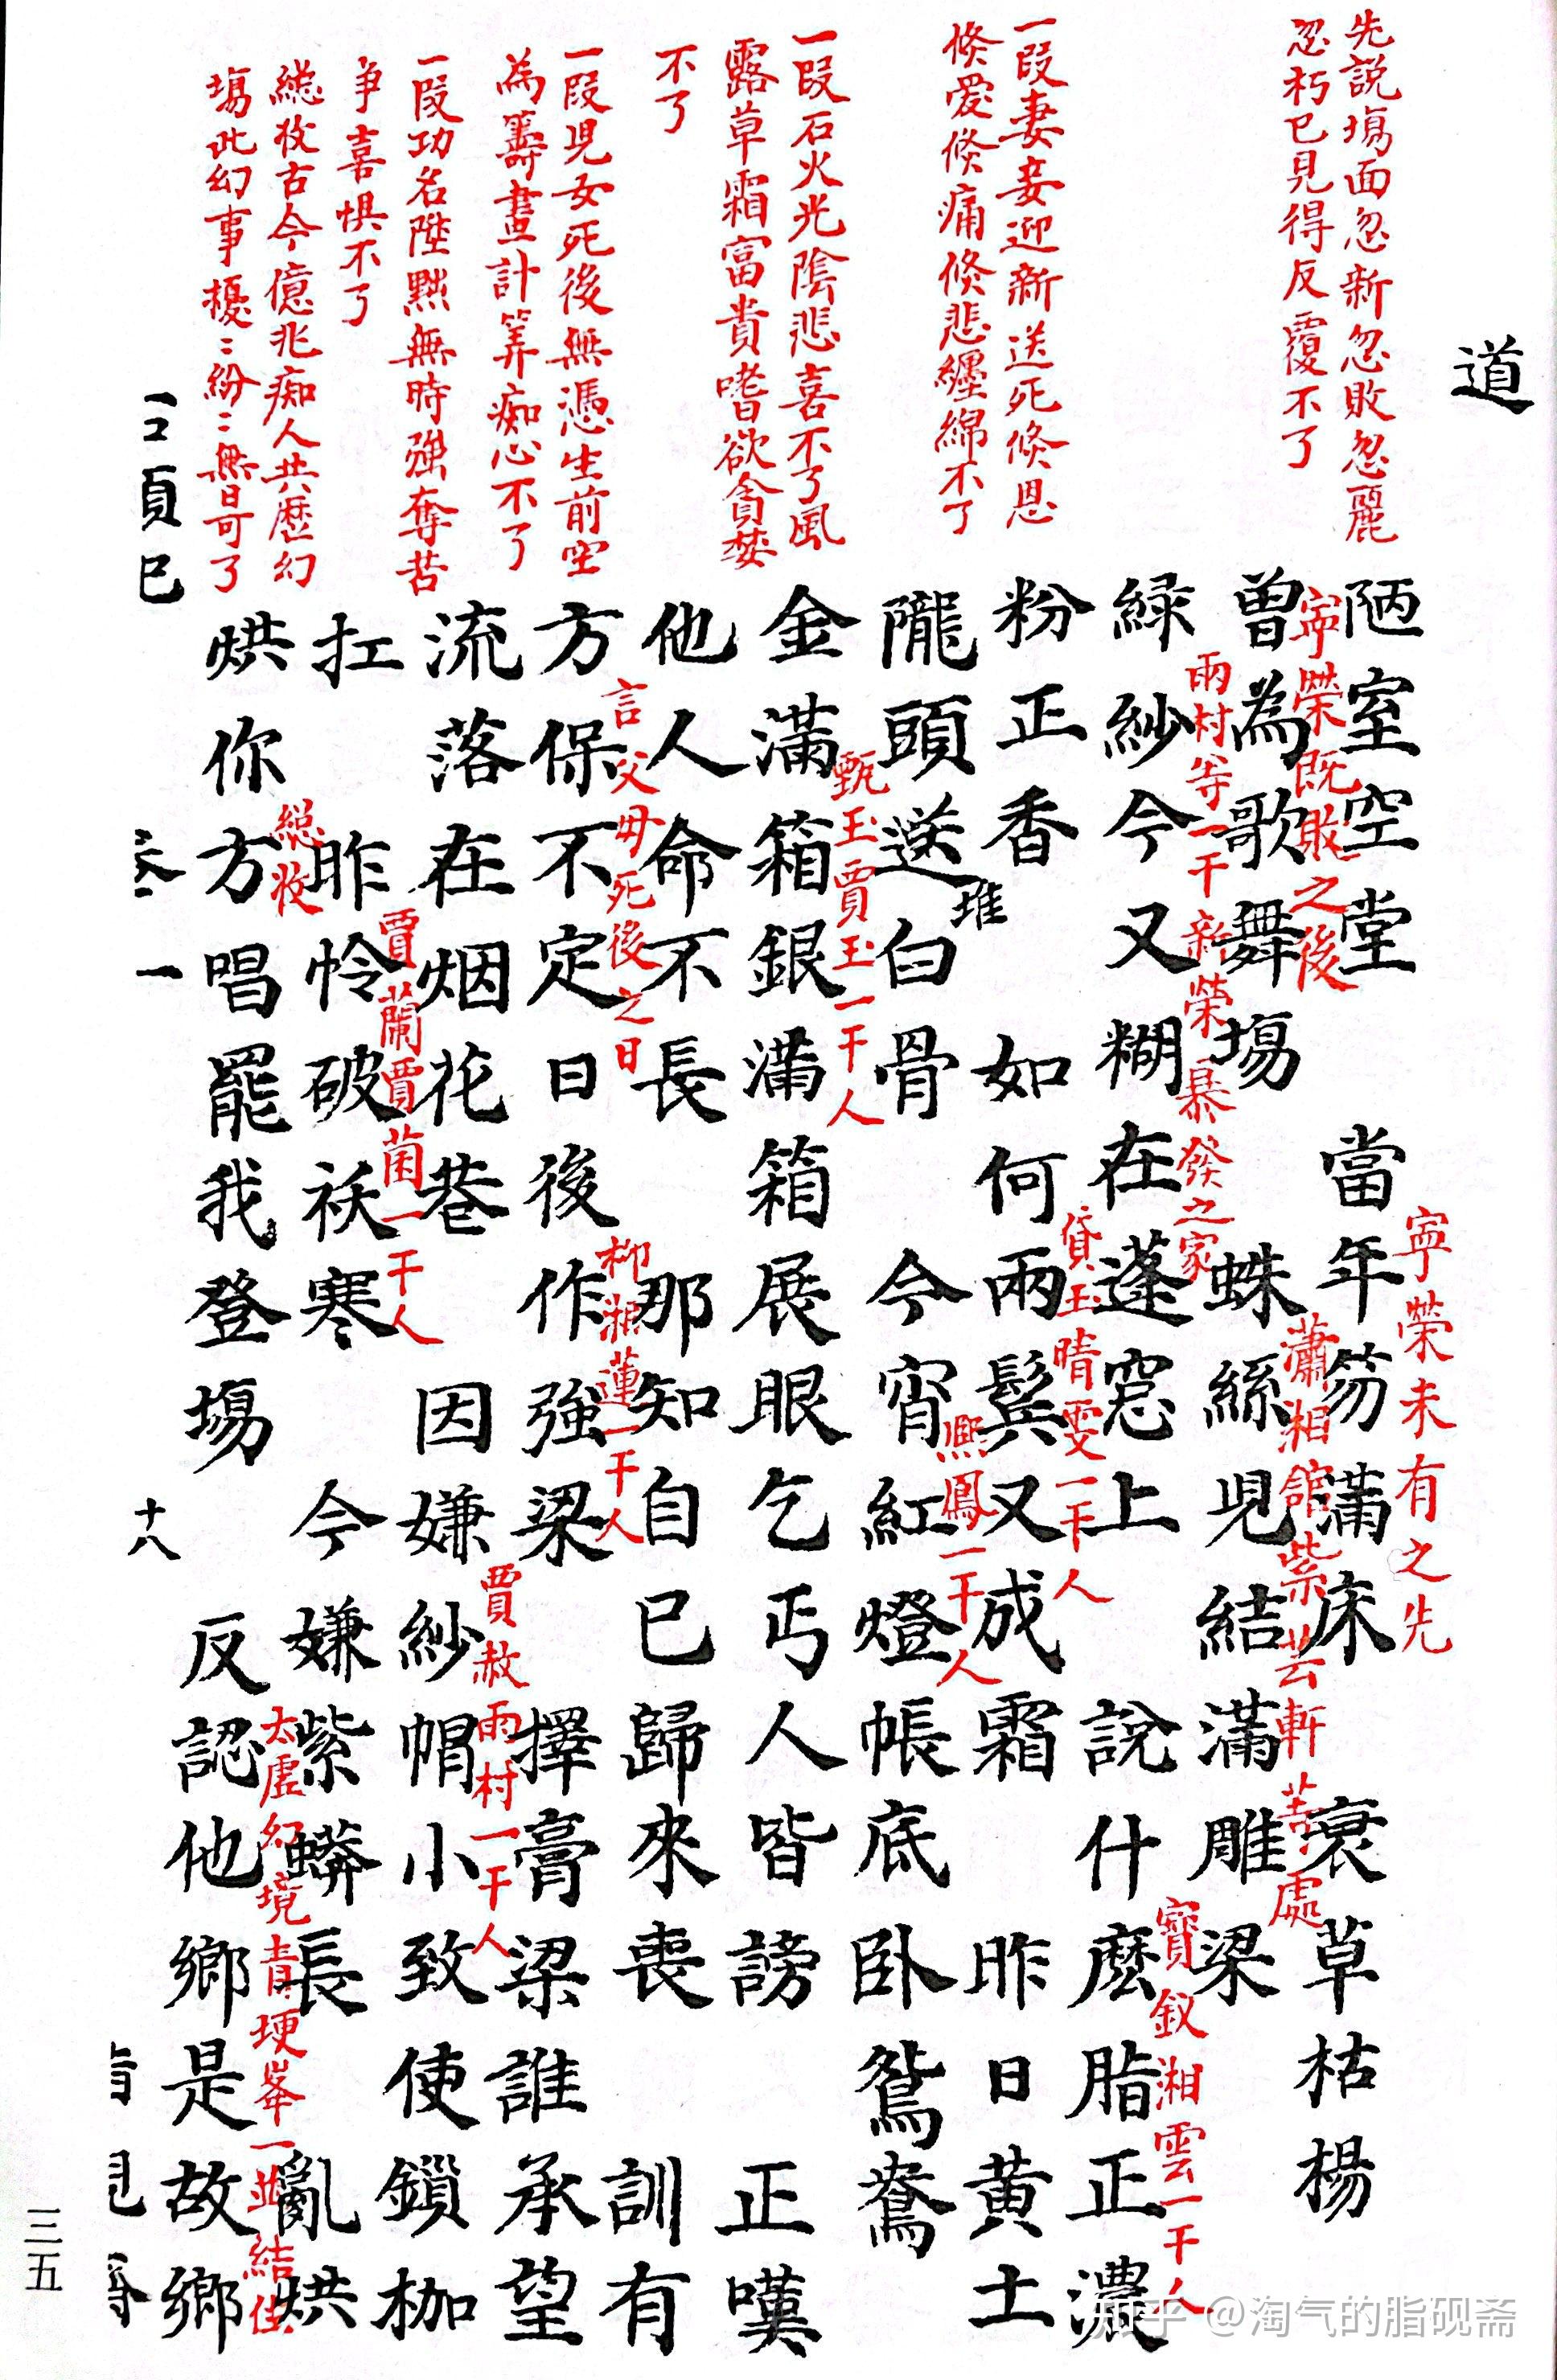 道
先説塲面忽新忽敗忽麗
忽朽已見得反覆不了
一段妻妾迎新送死倏恩
倏愛倏痛倏悲纏綿不了
一段石火光陰悲喜不了風
露草霜富貴嗜欲貪婪
不了
一段児女死後無憑生前空
為籌畫計筭痴心不了
一段功名陞黜無時強奪苦
争喜惧不了
總收古今億兆痴人共歴幻
塲此幻事擾〻紛〻無日可了
陋室空堂 當年笏滿床 衰草枯楊
寕榮未有之先
寕榮既敗之後
曽為歌舞塲 蛛絲児結滿雕梁
瀟湘館紫芸軒等處
雨村等一干新榮暴發之家
緑紗今又糊在蓬窓上 說什麽脂正濃
寳釵湘雲一干人
粉正香 如何兩鬂又成霜 昨日黄土
貸玉晴雯一干人
隴頭送白骨 今宵紅燈帳底卧鴛鴦
堆
熈鳳一干人
金滿箱銀滿箱 展眼乞丐人皆謗 正嘆
甄玉賈玉一干人
他人命不長 那知自已歸來喪 訓有
言父毋死後之日
方保不定日後作強梁 擇膏梁誰承望
柳湘蓮一干人
流落在烟花巷 因嫌紗帽小致使鎖枷
賈赦雨村一干人
扛 昨怜破袄寒 今嫌紫蟒長 亂烘
賈蘭賈菌一干人
烘你方唱罷我登塲 反認他鄉是故鄉
總收
太虚幻境青埂峯一並結住
十八
三五
知乎 @淘气的脂砚斋